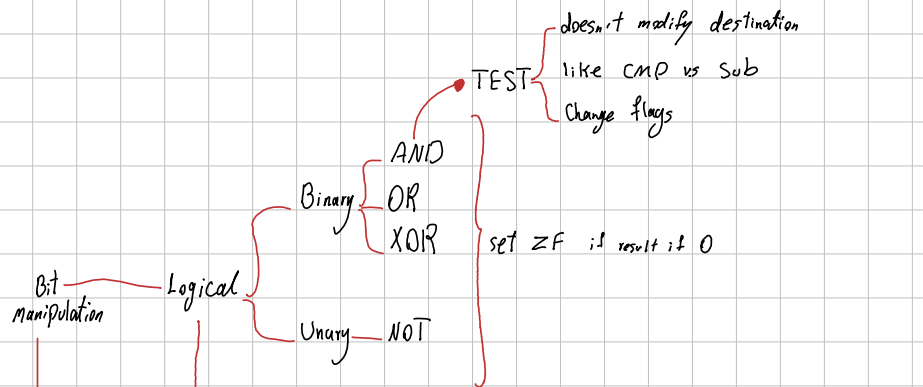 doesn't modify destination
TEST
like CMP vs Sub
Change flags
AND
Binary
OR
XOR
set ZF if result if 0
Bit
manipulation
Logical
Unary
NOT